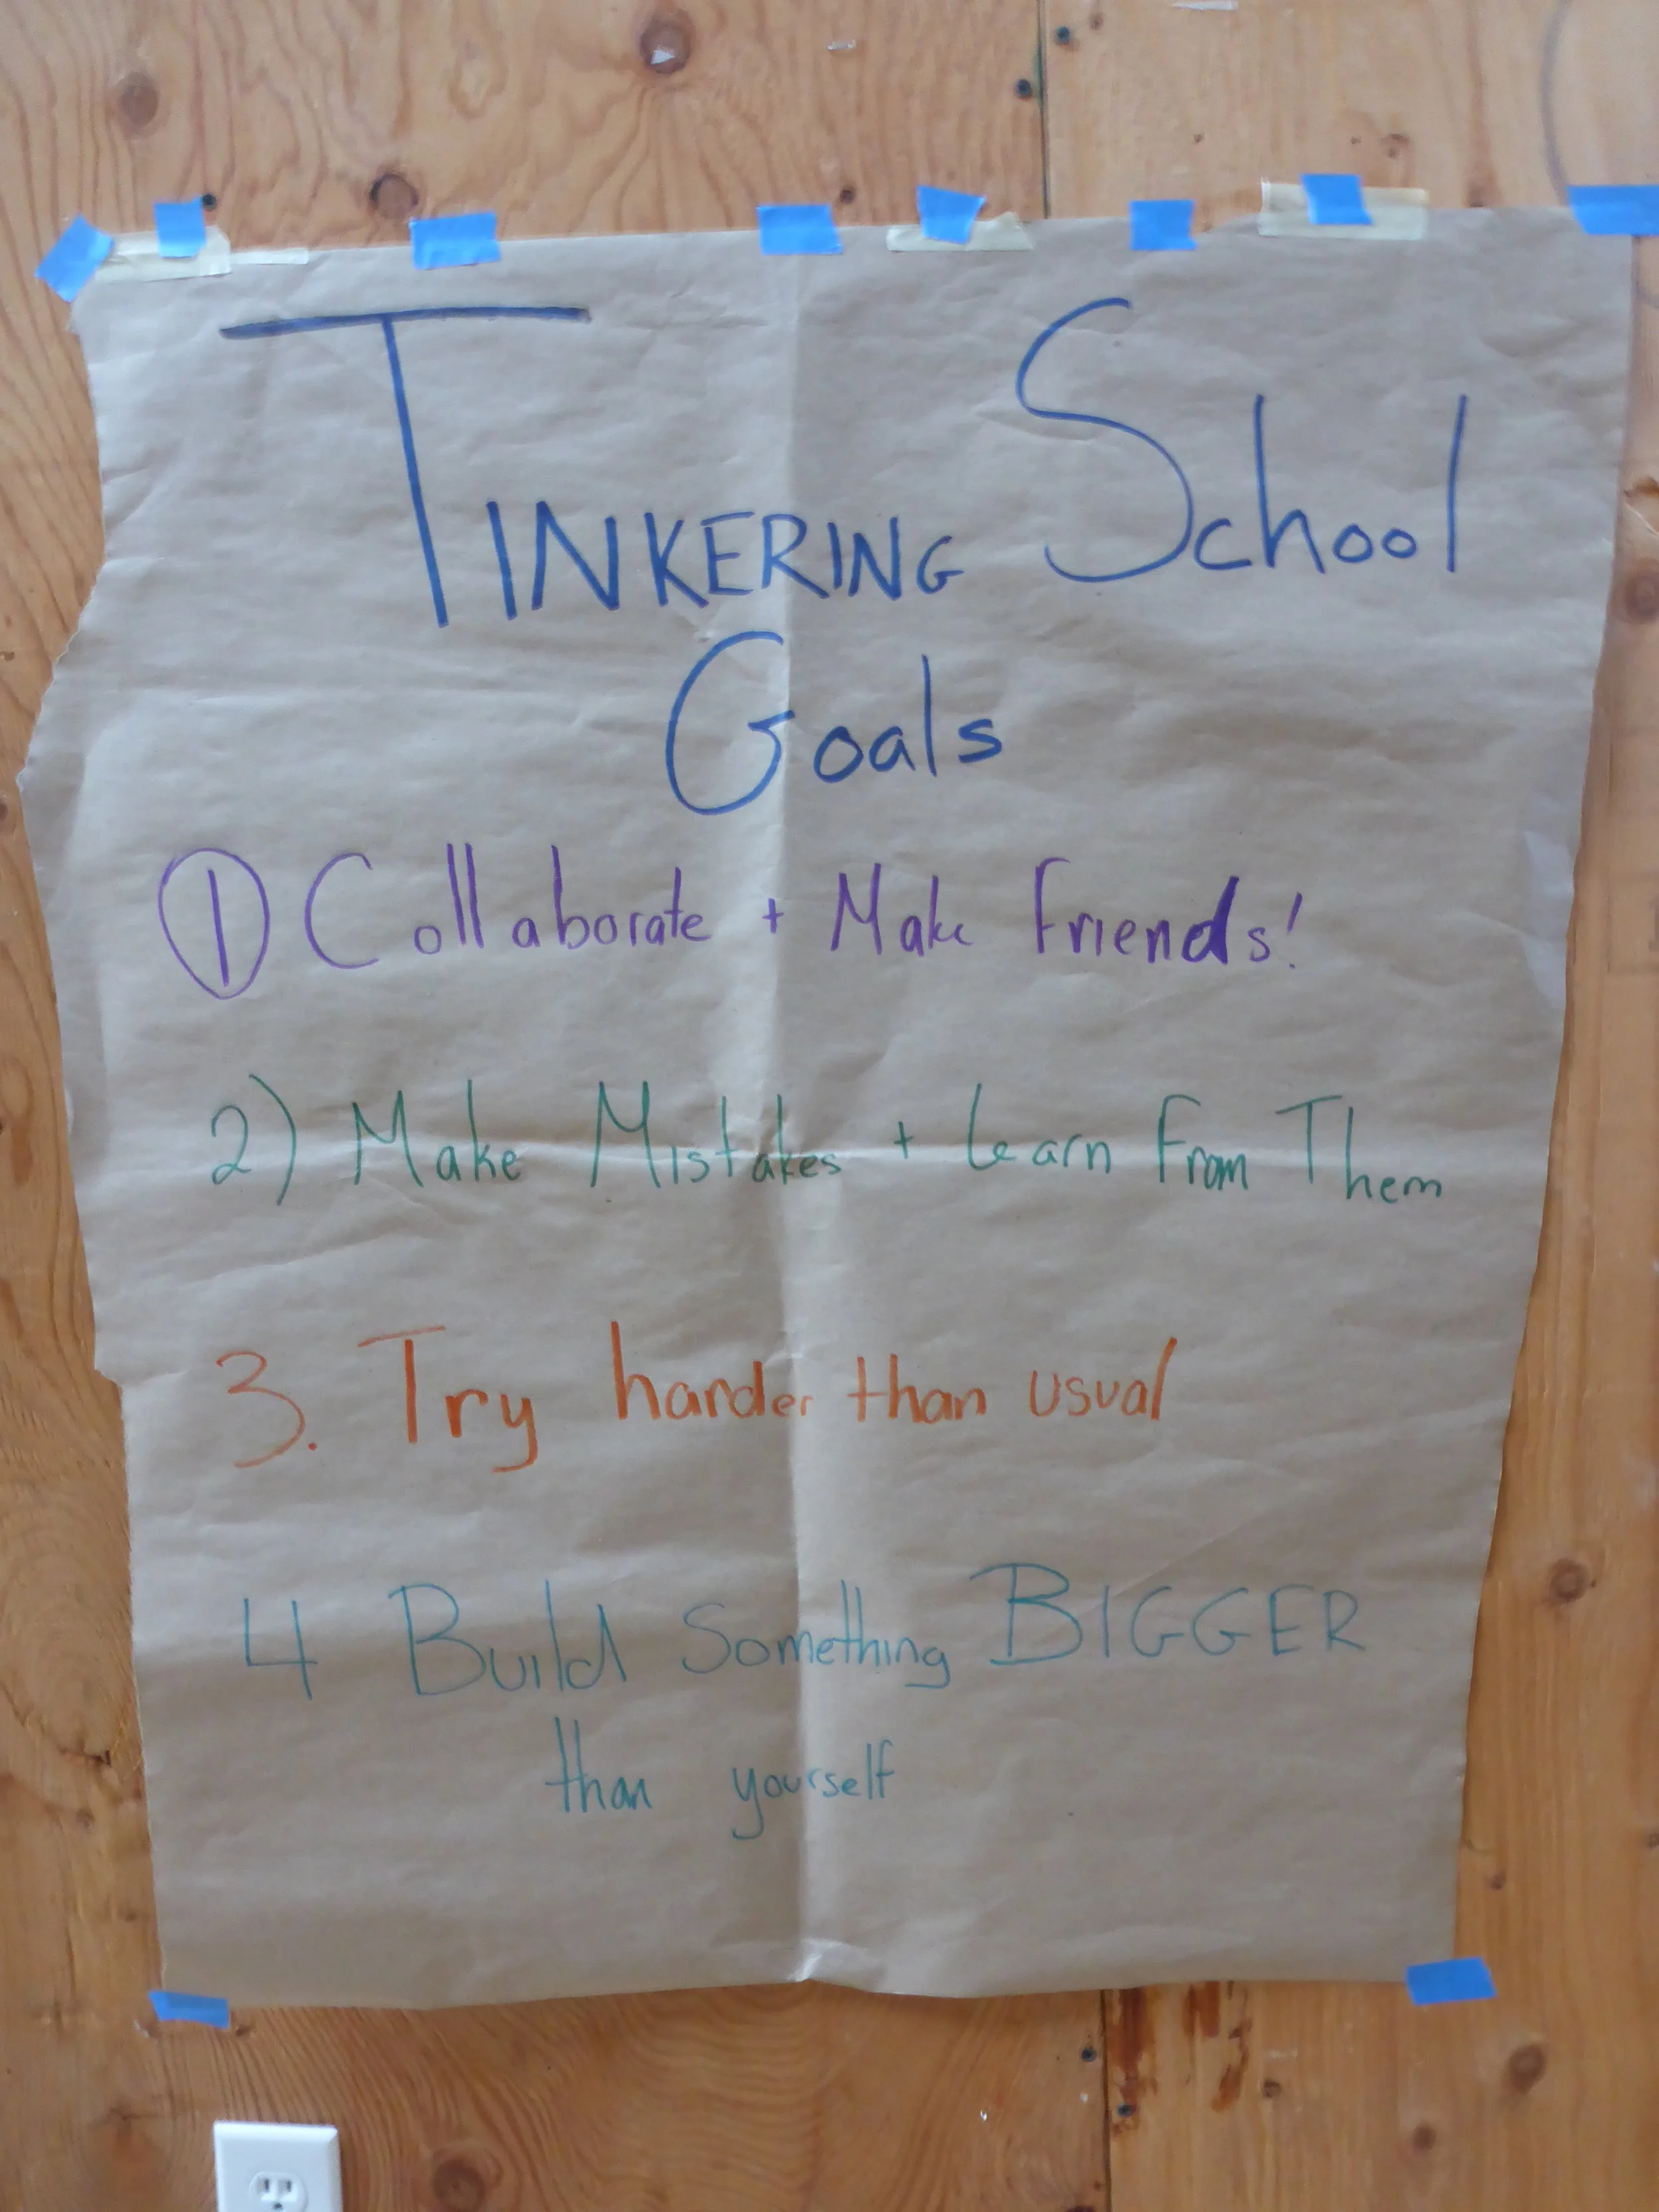 TINKERING School
Goals
① Collaborate + Make Friends!
2) Make Mistakes + Learn From Them
3. Try harder than usual
4 Build Something BIGGER
than yourself